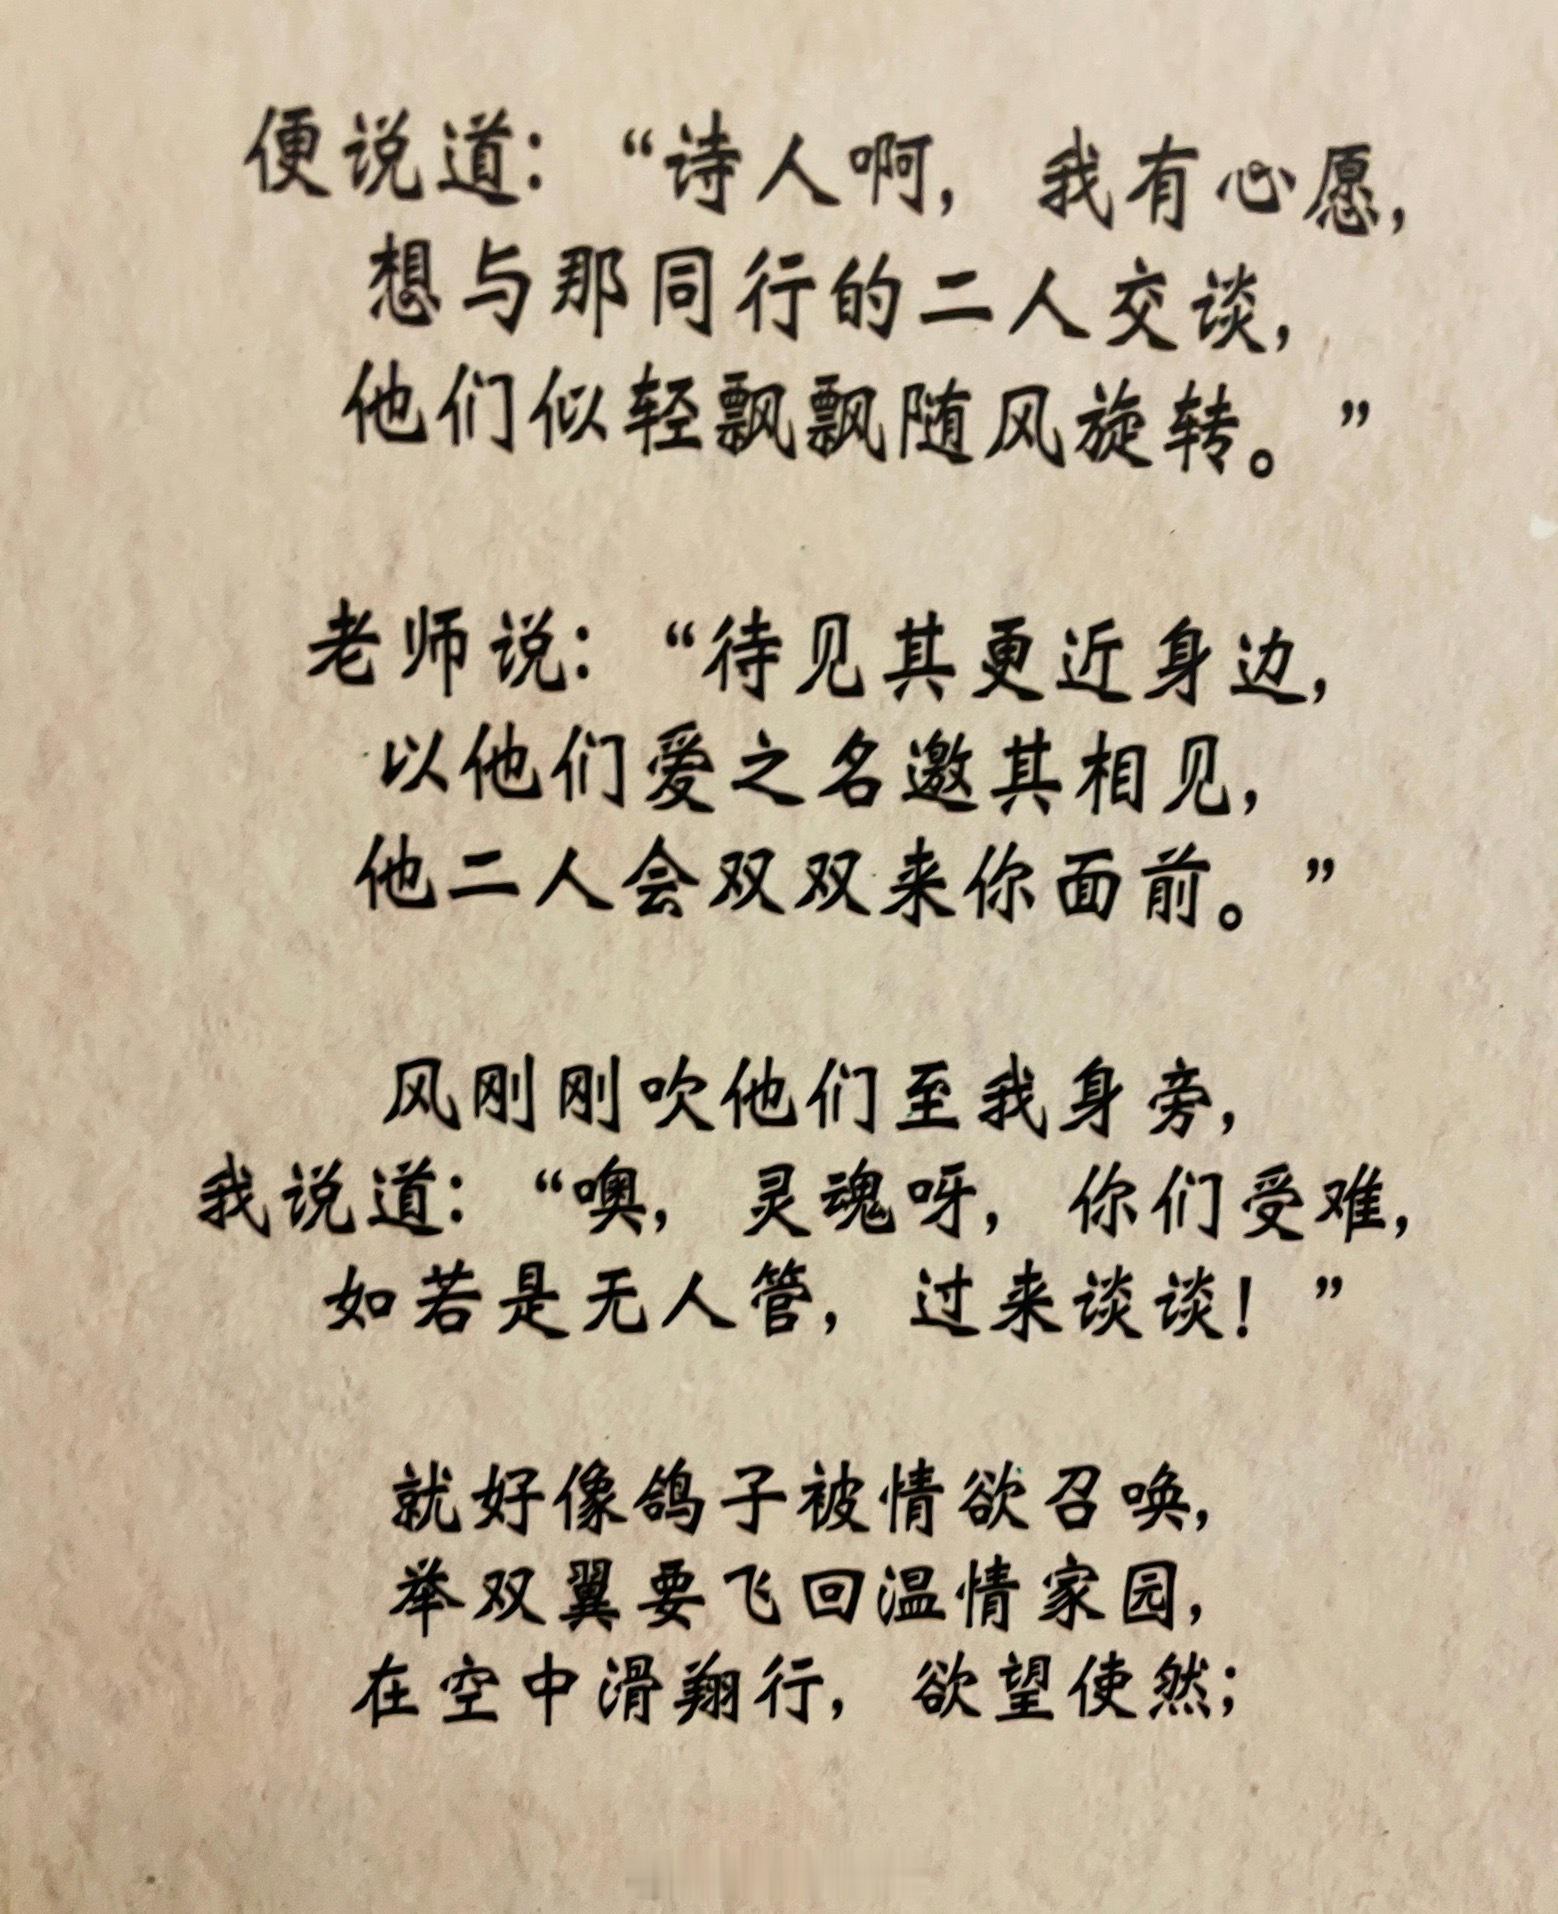 便说道：“诗人啊，我有心愿，
想与那同行的二人交谈，
他们似轻飘飘随风旋转。”
老师说：“待见其更近身边，
以他们爱之名邀其相见，
他二人会双双来你面前。”
风刚刚吹他们至我身旁，
我说道：“噢，灵魂呀，你们受难，
如若是无人管，过来谈谈！”
就好像鸽子被情欲召唤，
举双翼要飞回温情家园，
在空中滑翔行，欲望使然；